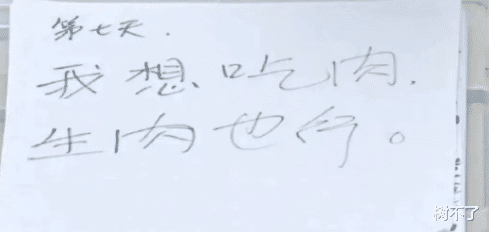 第七天.
我想吃肉.
生肉也行。
树不了